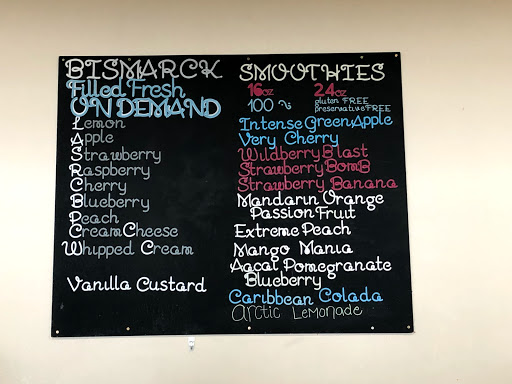 BISMARCK
Filled Fresh
ON DEMAND
Lemon
Apple
Strawberry
Raspberry
Cherry
Blueberry
Peach
Cream Cheese
Whipped Cream
Vanilla Custard
SMOOTHIES
16oz 24oz
100 %
gluten FREE
preservative FREE
Intense Green Apple
Very Cherry
Wildberry Blast
Strawberry BomB
Strawberry Banana
Mandarin Orange
Passion Fruit
Extreme Peach
Mango Mania
Aacai Pomegranate
Blueberry
Caribbean Colada
Arctic Lemonade